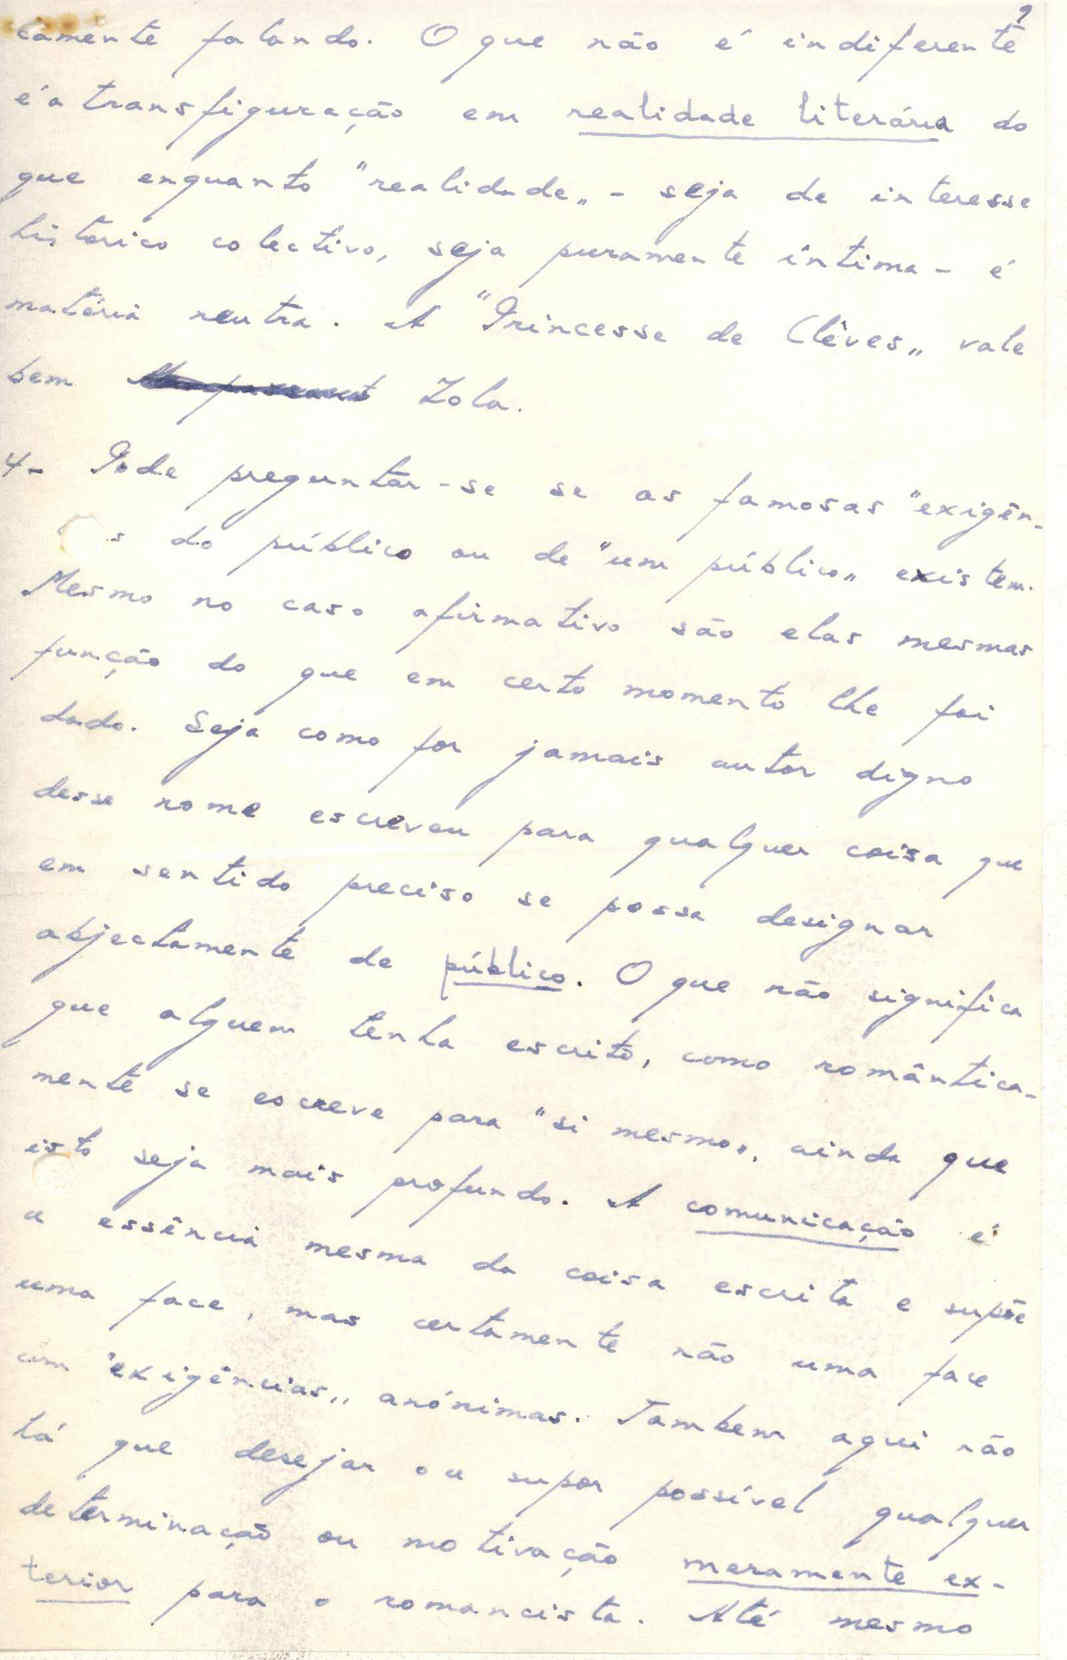 9
camente falando. O que não é indiferente
é a transfiguração em realidade literária do
que enquanto "realidade„ - seja de interesse
histórico colectivo, seja puramente íntima - é
matéria neutra. A "Princesse de Clêves„ vale
bem Zola.
4- Pode preguntar-se se as famosas "exigên-
s do público ou de "um público„ existem.
Mesmo no caso afirmativo são elas mesmas
função do que em certo momento lhe foi
dado. Seja como for jamais autor digno
desse nome escreveu para qualquer coisa que
em sentido preciso se possa designar
abjectamente de público. O que não significa
que alguem tenha escrito, como romântica-
mente se escreve para "si mesmo„, ainda que
isto seja mais profundo. A comunicação é
a essência mesma da coisa escrita e supõe
uma face, mas certamente não uma face
com "exigências„ anónimas. Tambem aqui não
há que desejar ou supor possível qualquer
determinação ou motivação meramente ex-
terior para o romancista. Até mesmo